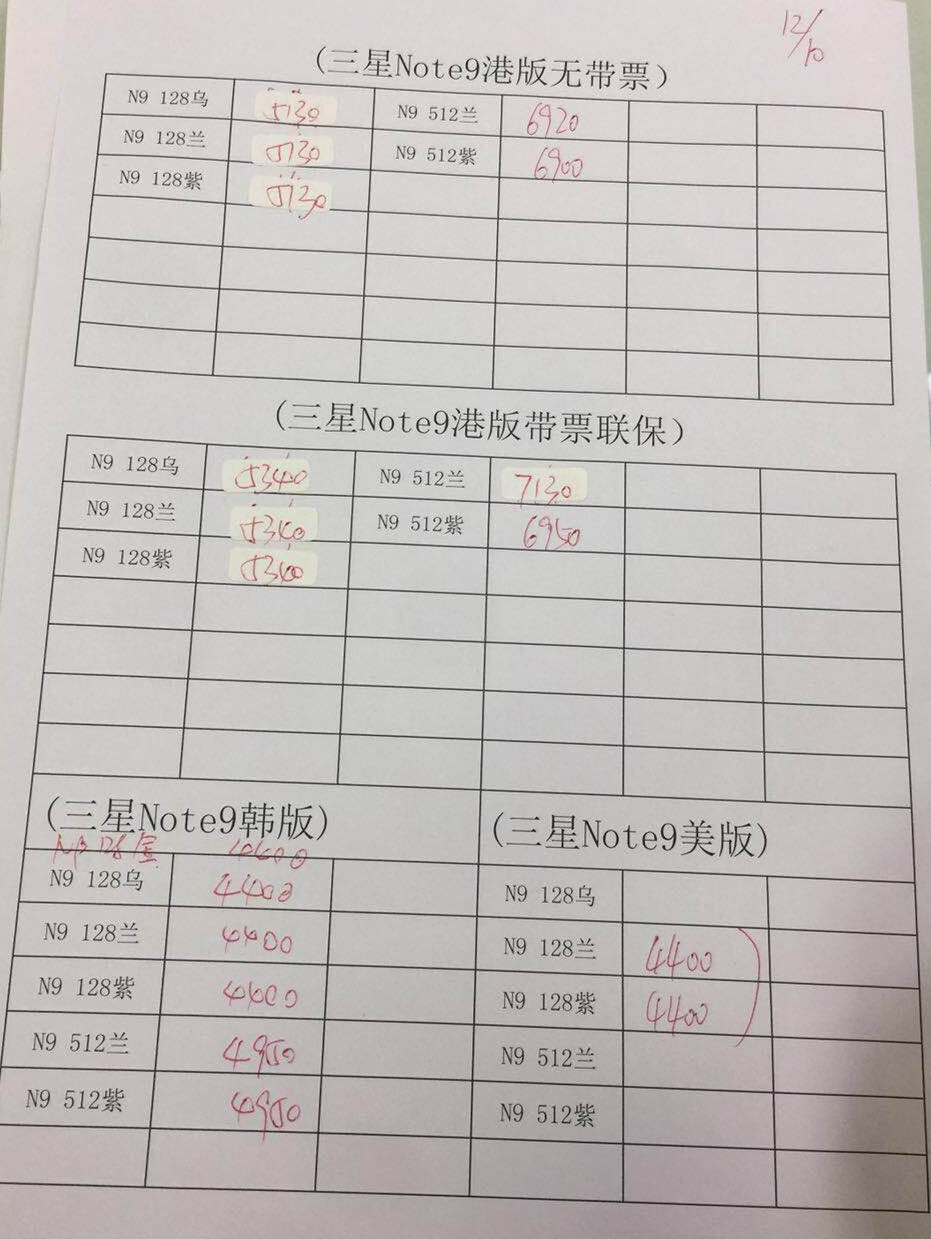 12/10
(三星Note9港版无带票)
N9 128乌 5130 N9 512兰 6920
N9 128兰 5130 N9 512紫 6900
N9 128紫 5130
(三星Note9港版带票联保)
N9 128乌 5340 N9 512兰 7130
N9 128兰 5340 N9 512紫 6950
N9 128紫 5340
(三星Note9韩版) (三星Note9美版)
128
N9 128乌 4400 N9 128乌
N9 128兰 4400 N9 128兰 4400
N9 128紫 4400 N9 128紫 4400
N9 512兰 4950 N9 512兰
N9 512紫 4950 N9 512紫